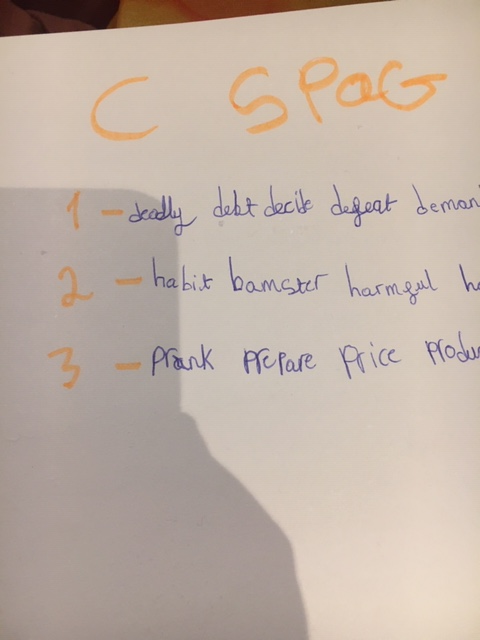 C SPaG
1 - deadly debt decide defeat deman
2 - habit hamster harmful h
3 - prank prepare price produ